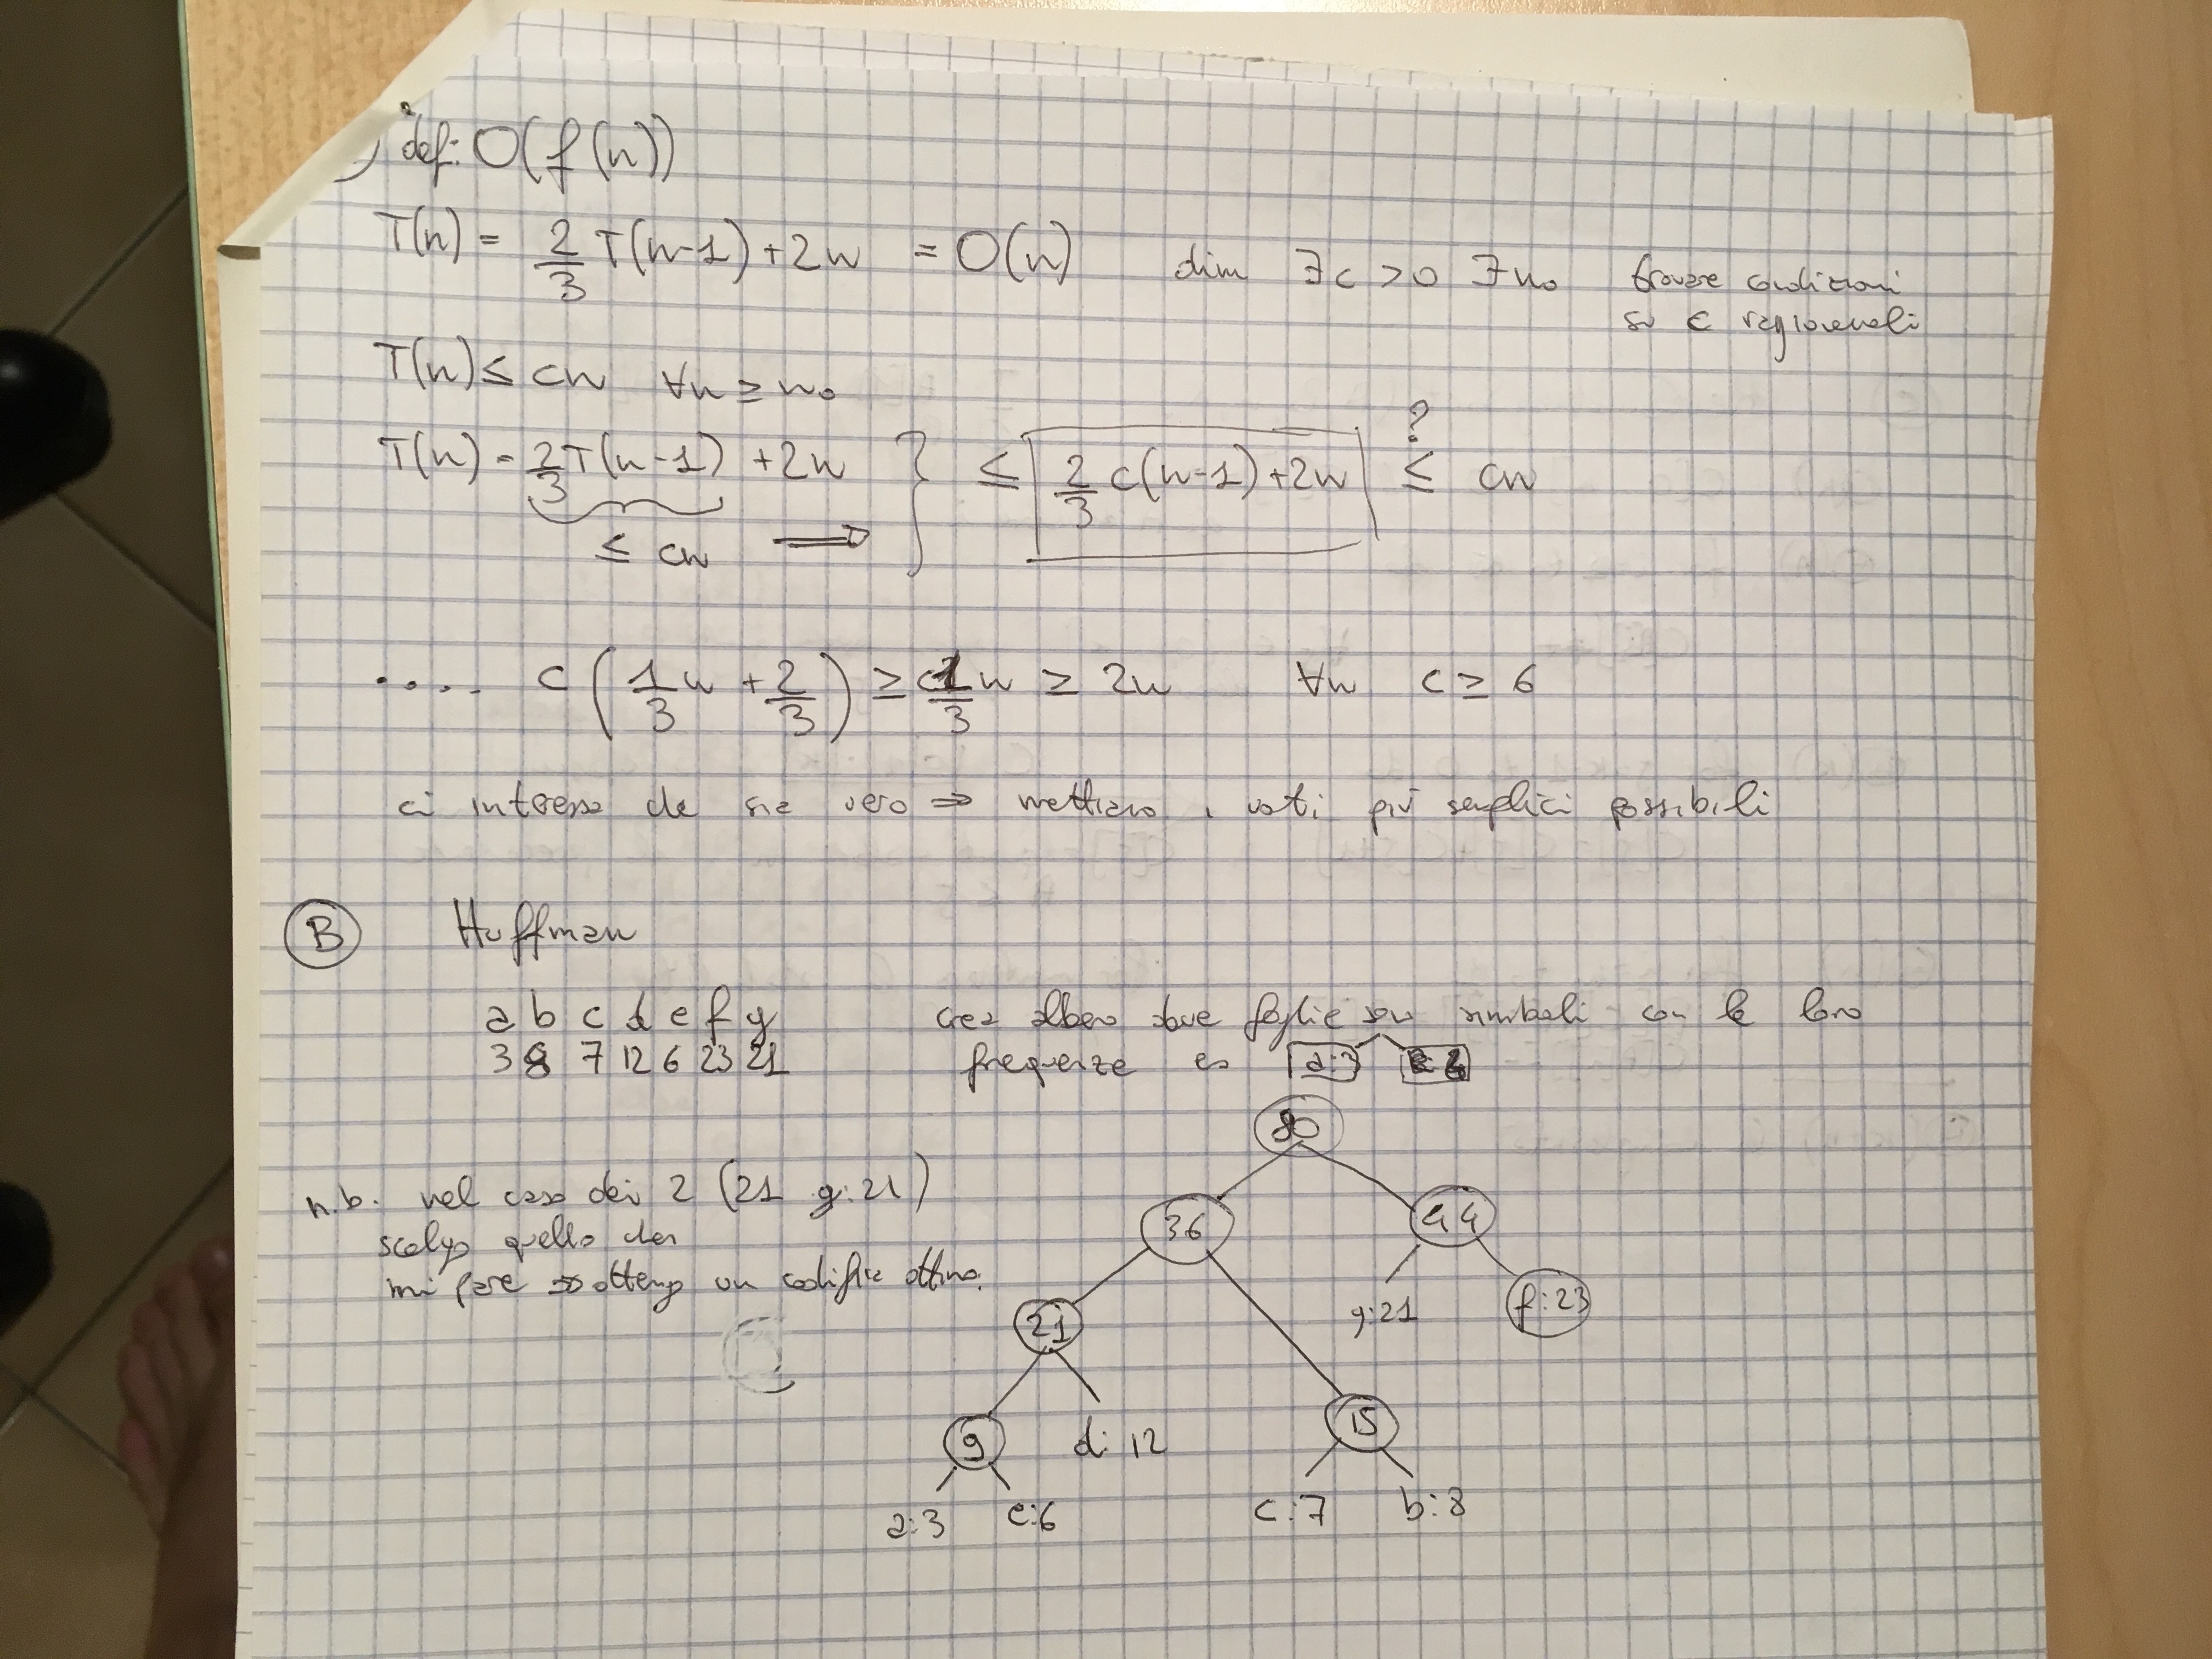 def: O(f(n))
T(n) = 2/3 T(n-1) + 2n = O(n) dim ∃c > 0 ∃n₀ trovare condizioni
su c ragionevoli
T(n) ≤ cn ∀n ≥ n₀
T(n) = 2/3 T(n-1) + 2n } ≤ 2/3 c(n-1) + 2n ≤ cn
?
≤ cn ⟹
.... c(1/3 n + 2/3) ≥ c 1/3 n ≥ 2n ∀n c ≥ 6
ci interessa che sia vero ⇒ mettiamo i più semplici possibili
B Huffman
a b c d e f g crea albero dove foglie son simboli con le loro
3 8 7 12 6 23 21 frequenze es a:3
80
n.b. nel caso dei 2 (21 g:21)
36 44
scelgo quello che
mi pare ⇒ ottengo un codifica ottima.
21 g:21 f:23
9 d:12 15
a:3 e:6 c:7 b:8